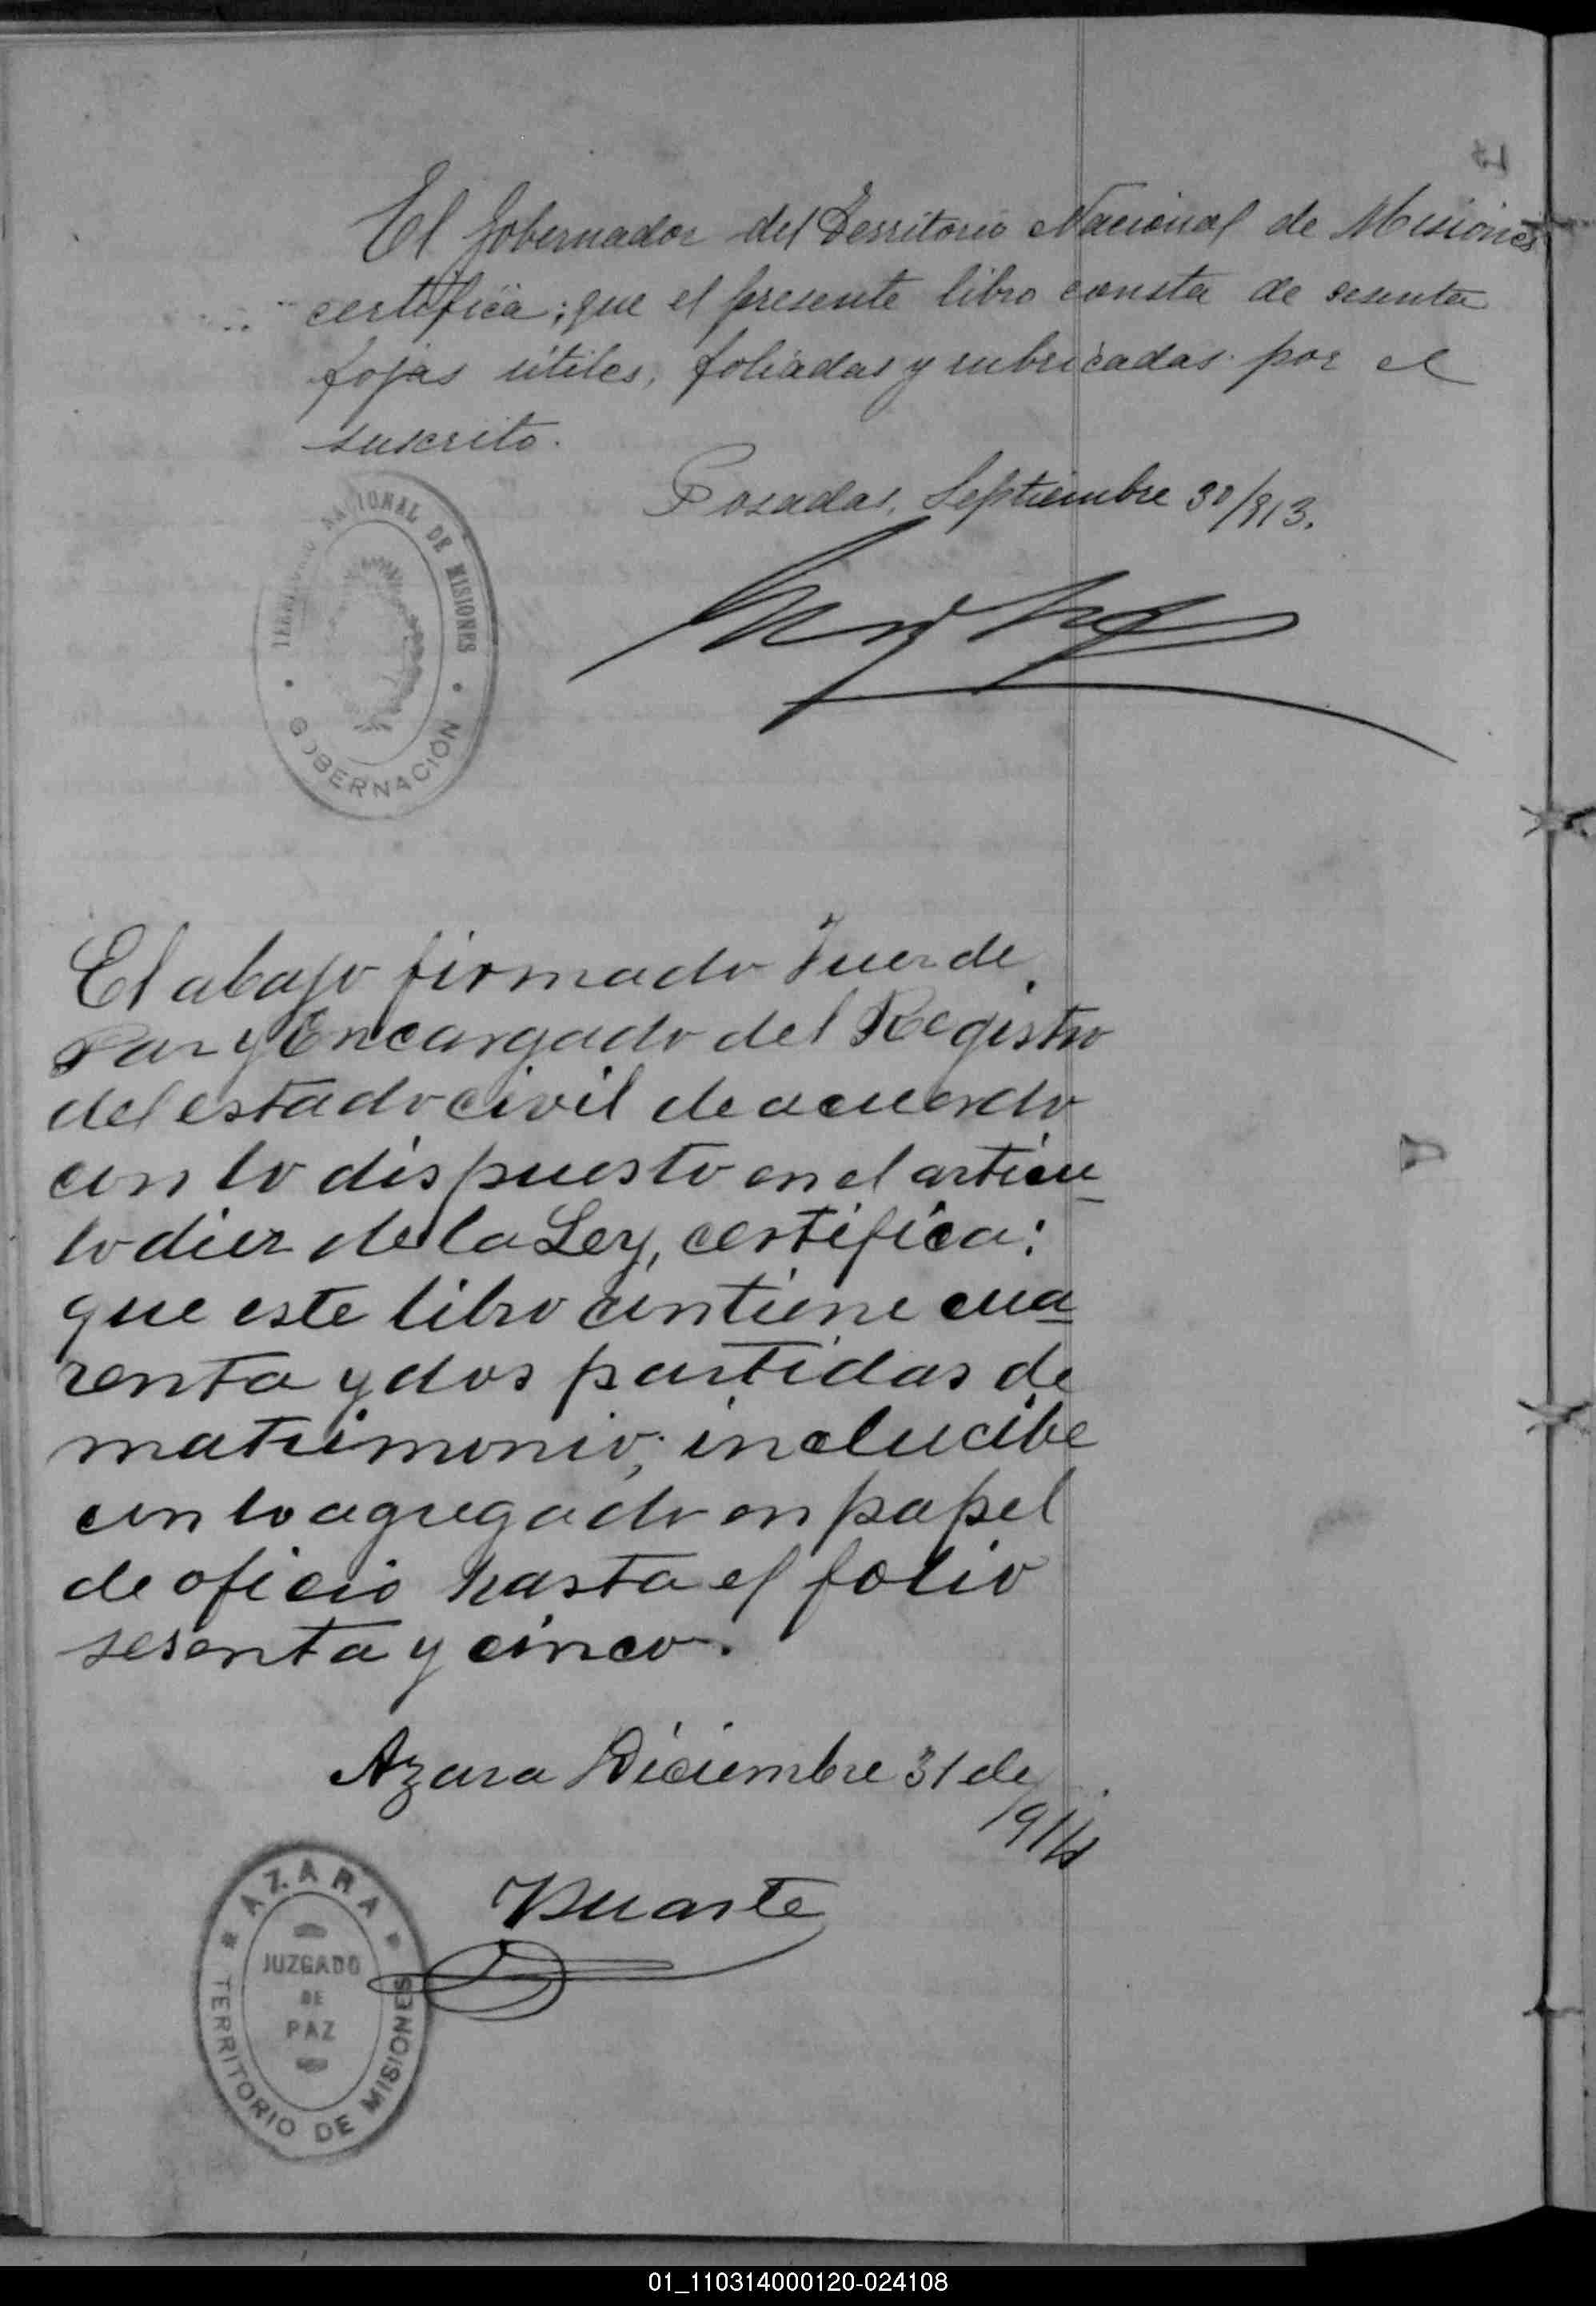 El Gobernador del Territorio Nacional de Misiones
certifica; que el presente libro consta de sesenta
fojas útiles, foliadas y rubricadas por el
suscrito.
Posadas, Septiembre 30/913.
TERRITORIO NACIONAL DE MISIONES
GOBERNACIÓN
El abajo firmado Juez de
Paz y Encargado del Registro
del estado civil de acuerdo
con lo dispuesto en el articu
lo diez de la Ley, certifica:
que este libro contiene cua
renta y dos partidas de
matrimonio; inclucibe
con lo agregado en papel
de oficio hasta el folio
sesenta y cinco.
Azara Diciembre 31 de
1914
Duarte
AZARA
JUZGADO
DE
PAZ
TERRITORIO DE MISIONES
01_110314000120-024108